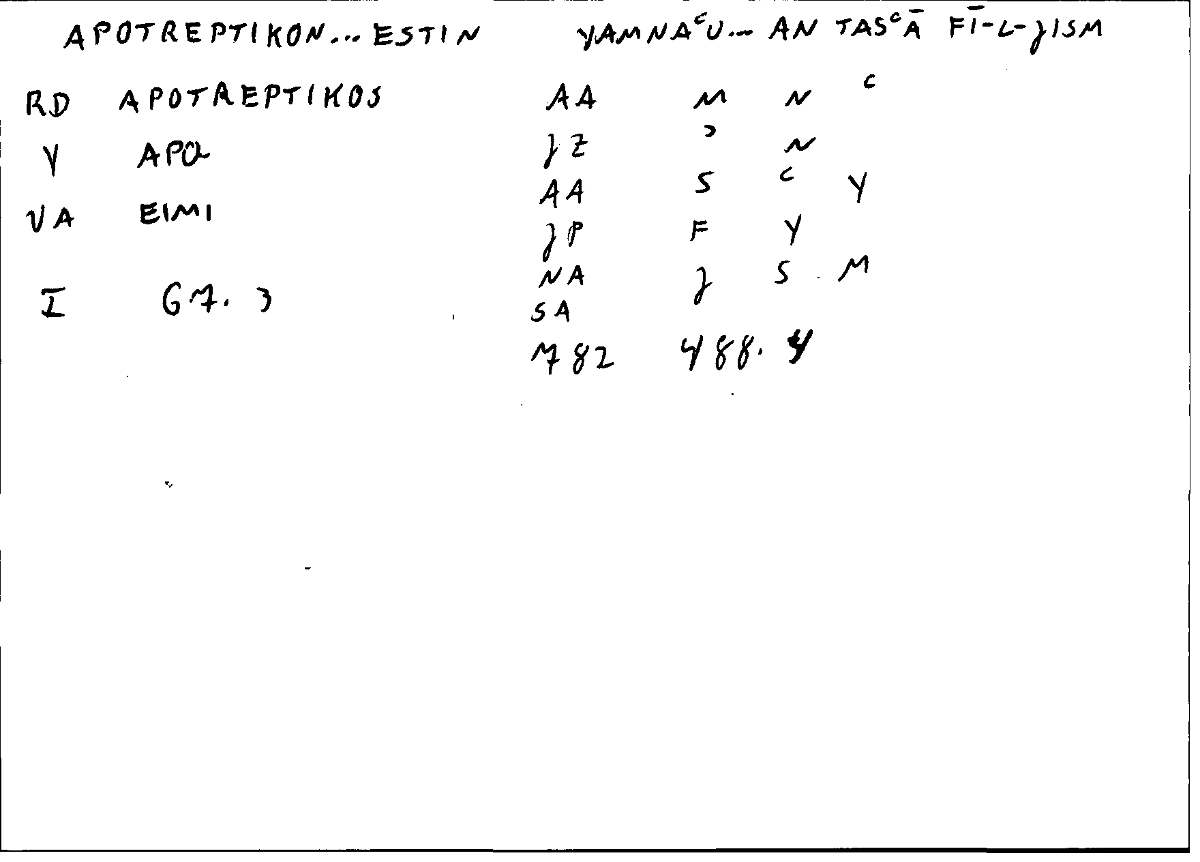 APOTREPTIKON... ESTIN YAMNAᶜU... AN TASᶜĀ FĪ-L-ƷISM
RD APOTREPTIKOS AA M N ᶜ
Y APO ƷZ ʾ N
AA S ᶜ Y
VA EIMI
ƷP F Y
NA Ʒ S M
I 67. 3
SA
782 488. 4